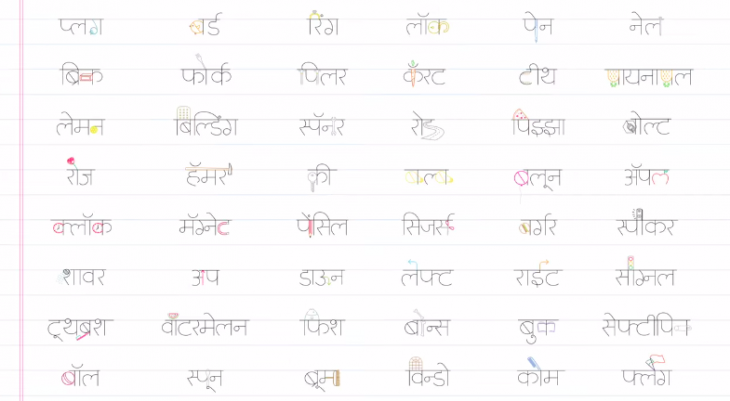 प्लग बर्ड रिंग लॉक पेन नेल
ब्रिक फोर्क पिलर कॅरट टीथ पायनापल
लेमन बिल्डिंग स्पॅनर रोड पिझ्झा बोल्ट
रोज हॅमर की बल्ब बलून ॲपल
क्लॉक मॅग्नेट पेंसिल सिजर्स बर्गर स्पीकर
शावर अप डाऊन लेफ्ट राईट सिग्नल
टूथब्रश वॉटरमेलन फिश बोन्स बुक सेफ्टीपिन
बॉल स्पून ब्रूम विन्डो कोम फ्लॅग